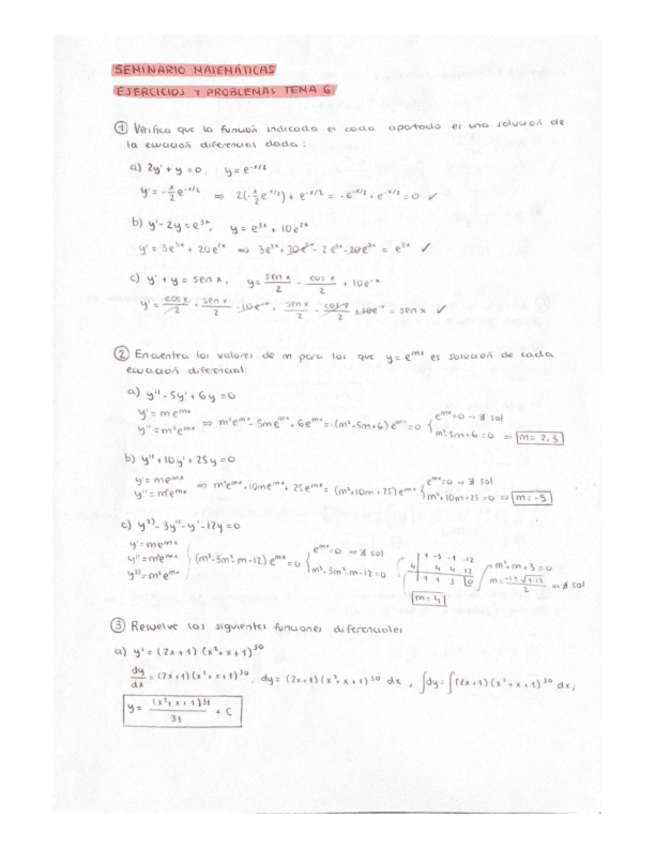 SEMINARIO MATEMÁTICAS
EJERCICIOS Y PROBLEMAS TEMA 6
① Verifica que la función indicada en cada apartado es una solución de
la ecuación diferencial dada:
a) 2y' + y = 0, y = e^{-x/2}
y' = -1/2 e^{-x/2} ⇒ 2(-1/2 e^{-x/2}) + e^{-x/2} = -e^{-x/2} + e^{-x/2} = 0 ✓
b) y' - 2y = e^{3x}, y = e^{3x} + 10e^{2x}
y' = 3e^{3x} + 20e^{2x} ⇒ 3e^{3x} + 20e^{2x} - 2e^{3x} - 20e^{2x} = e^{3x} ✓
c) y' + y = sen x, y = sen x/2 - cos x/2 + 10e^{-x}
y' = cos x/2 + sen x/2 - 10e^{-x} + sen x/2 - cos x/2 + 10e^{-x} = sen x ✓
② Encuentra los valores de m para los que y = e^{mx} es solución de cada
ecuación diferencial:
a) y'' - 5y' + 6y = 0
y' = me^{mx}
y'' = m²e^{mx} ⇒ m²e^{mx} - 5me^{mx} + 6e^{mx} = (m² - 5m + 6) e^{mx} = 0 { e^{mx} = 0 → ∄ sol
m² - 5m + 6 = 0 ⇒ m = 2, 3
b) y'' + 10y' + 25y = 0
y' = me^{mx}
y'' = m²e^{mx} ⇒ m²e^{mx} + 10me^{mx} + 25e^{mx} = (m² + 10m + 25) e^{mx} { e^{mx} = 0 → ∄ sol
m² + 10m + 25 = 0 ⇒ m = -5
c) y^{3)} - 3y'' - y' - 12y = 0
y' = me^{mx}
y'' = m²e^{mx}
y^{3)} = m³e^{mx}
(m³ - 3m² - m - 12) e^{mx} = 0 { e^{mx} = 0 ⇒ ∄ sol
m³ - 3m² - m - 12 = 0
1 -3 -1 -12
4 4 4 12
1 1 3 0
m² + m + 3 = 0
m = -1 ± √1-12 / 2 ⇒ ∄ sol
m = 4
③ Resuelve las siguientes funciones diferenciales
a) y' = (2x + 1) (x² + x + 1)^{30}
dy/dx = (2x + 1) (x² + x + 1)^{30}, dy = (2x + 1) (x² + x + 1)^{30} dx, ∫dy = ∫(2x + 1) (x² + x + 1)^{30} dx,
y = (x² + x + 1)^{31}/31 + C